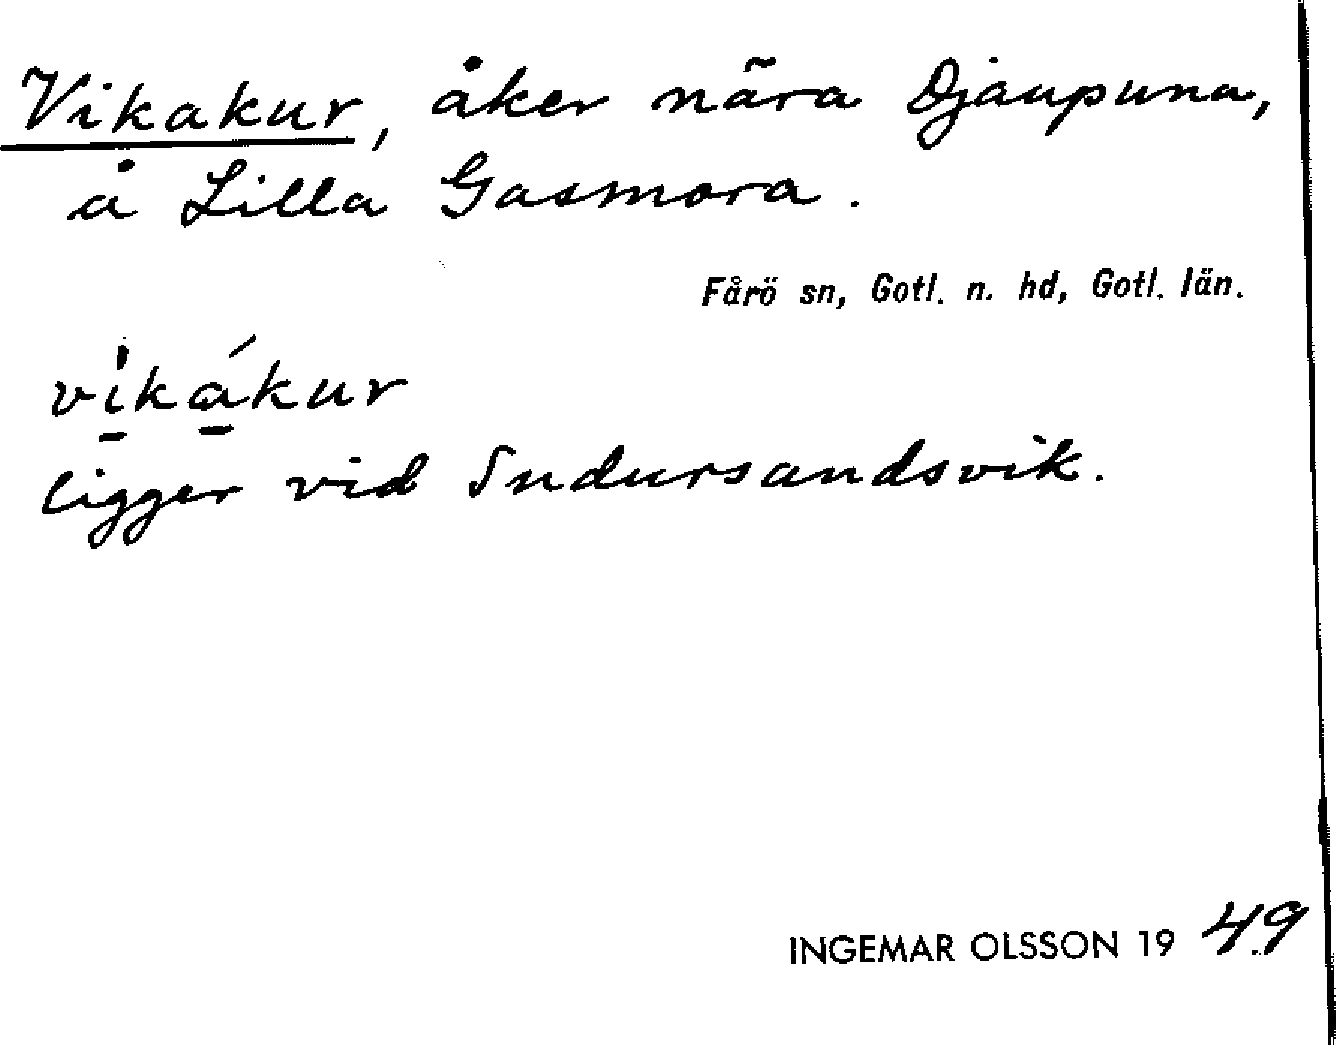 Vikakur, åker nära Djaupuna,
å Lilla Gasmora.
Fårö sn, Gotl. n. hd, Gotl. län.
vi̱ká̱kur
ligger vid Indursandsvik.
INGEMAR OLSSON 1949